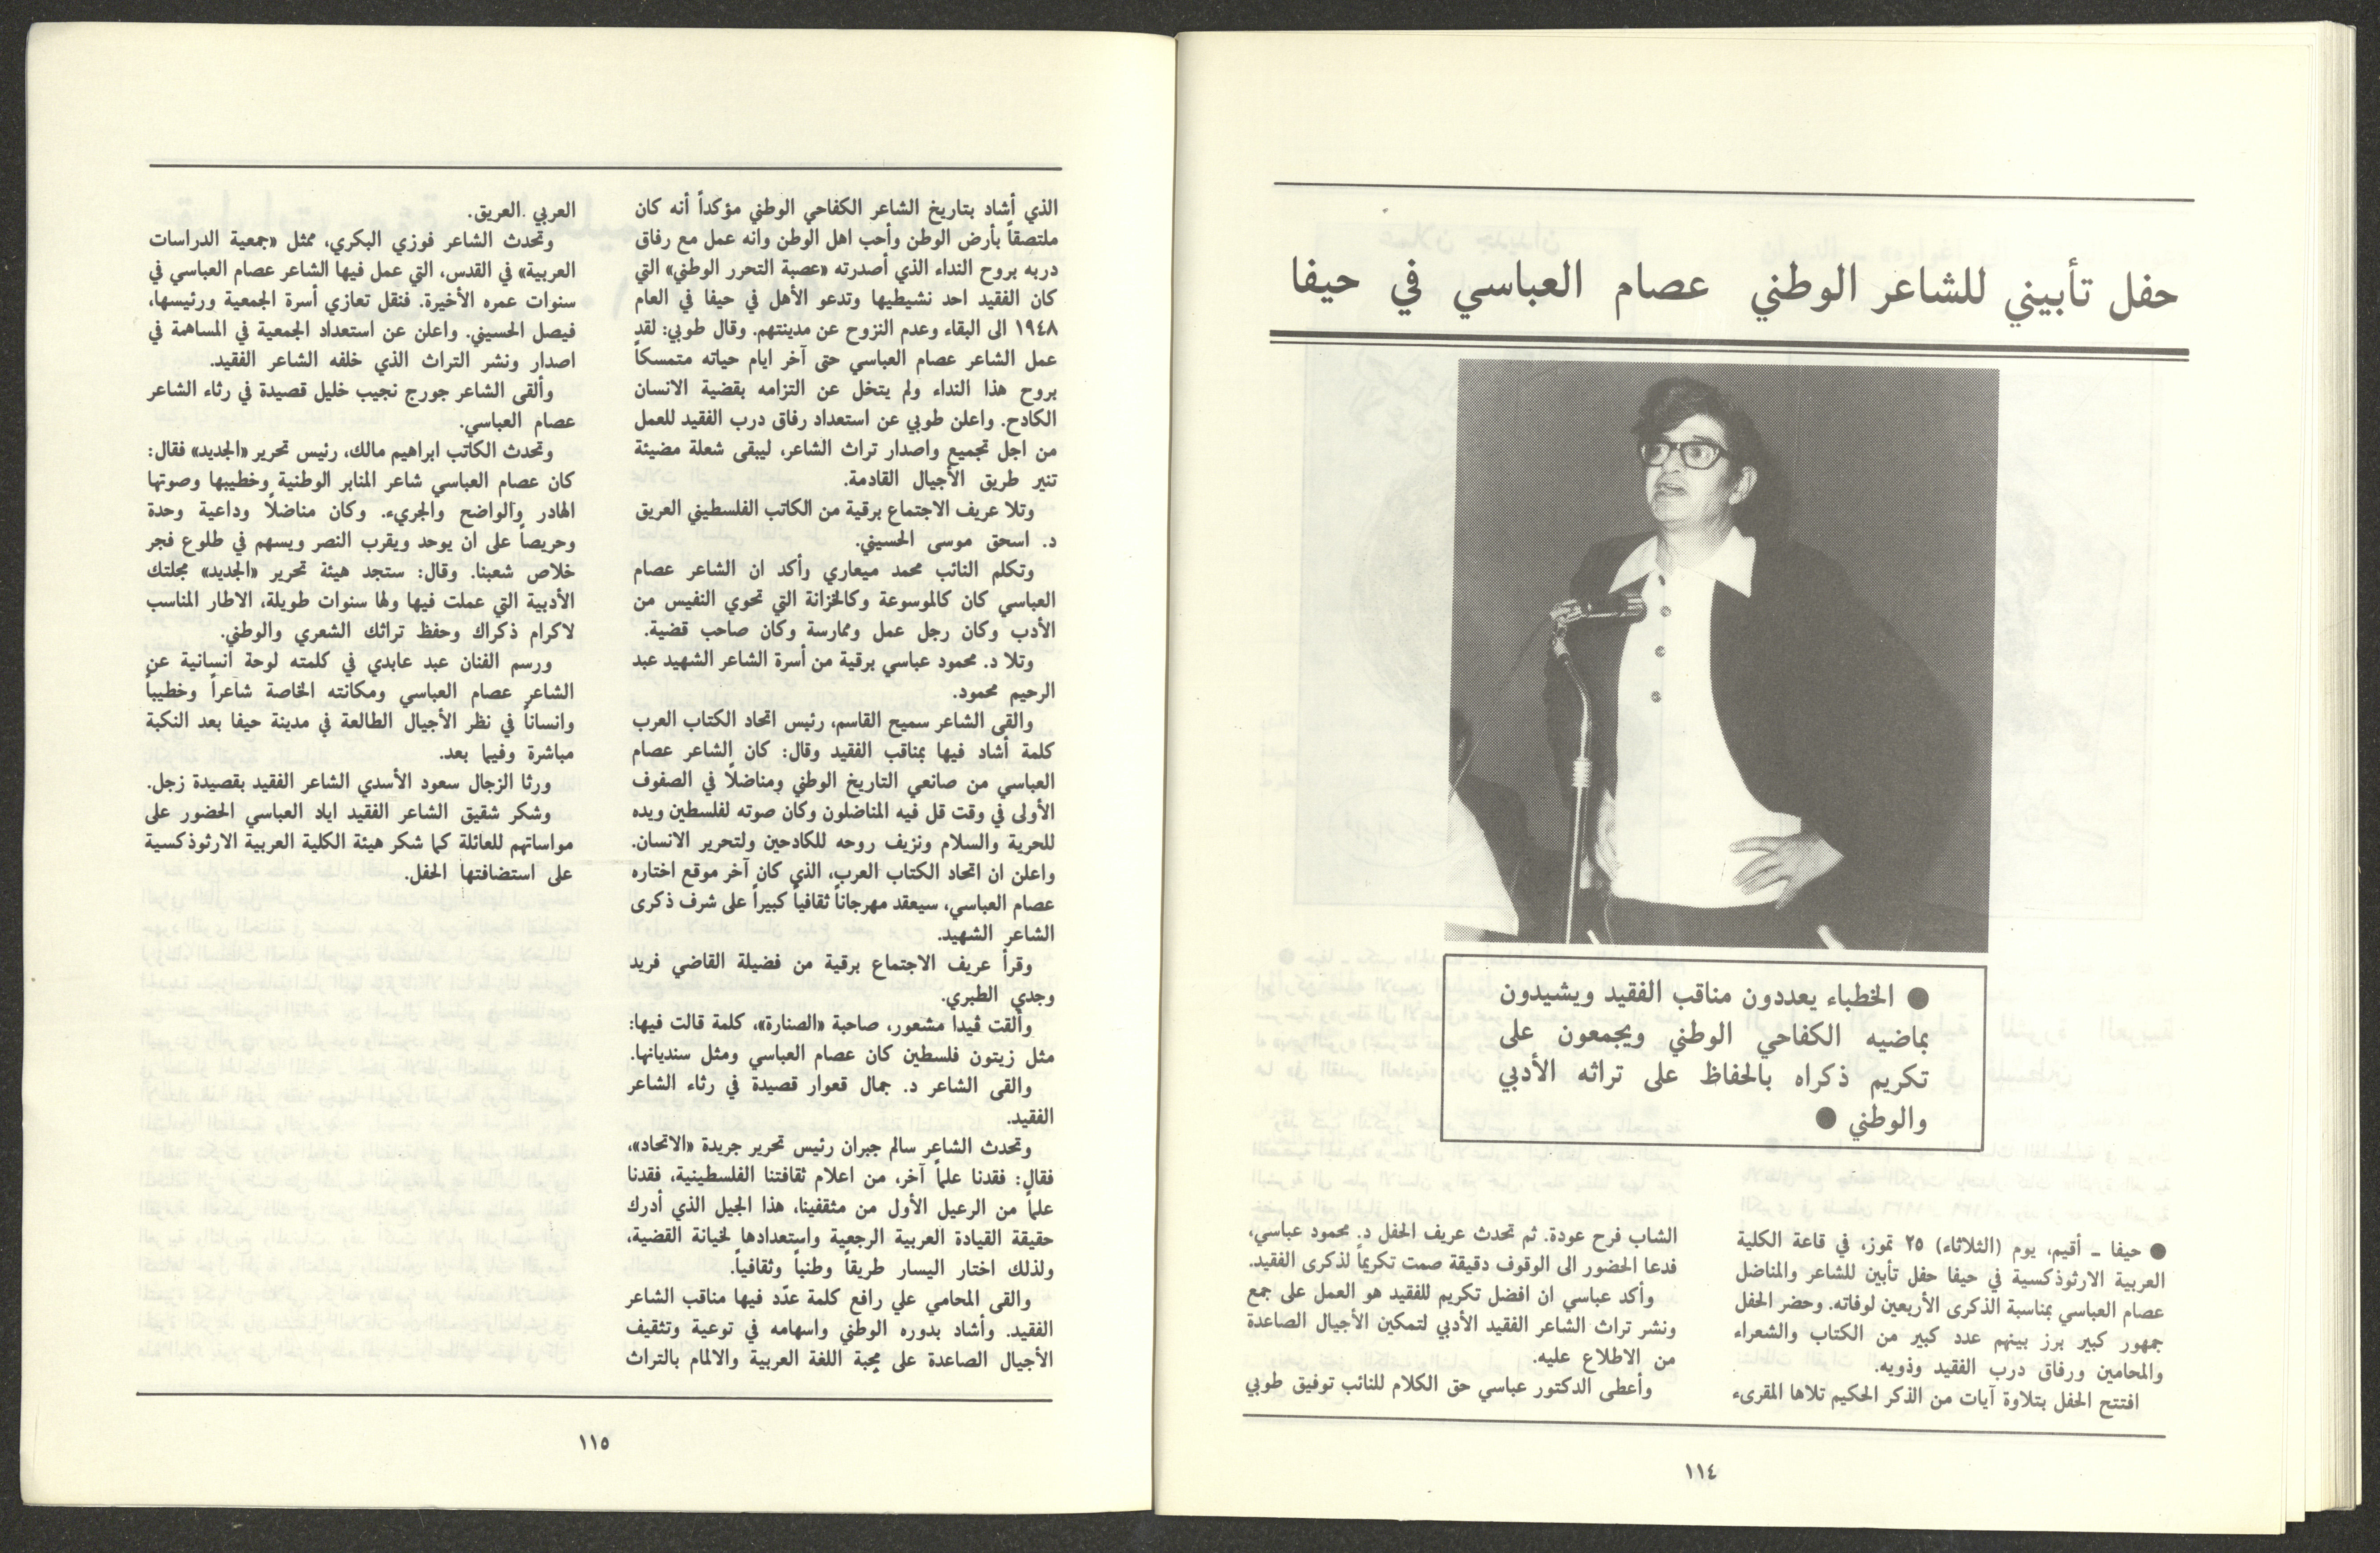 حفل تأبيني للشاعر الوطني عصام العباسي في حيفا
● الخطباء يعددون مناقب الفقيد ويشيدون
بماضيه الكفاحي الوطني ويجمعون على
تكريم ذكراه بالحفاظ على تراثه الأدبي
والوطني ●
● حيفا ـ أقيم، يوم (الثلاثاء) ٢٥ تموز، في قاعة الكلية
العربية الارثوذكسية في حيفا حفل تأبين للشاعر والمناضل
عصام العباسي بمناسبة الذكرى الأربعين لوفاته. وحضر الحفل
جمهور كبير برز بينهم عدد كبير من الكتاب والشعراء
والمحامين ورفاق درب الفقيد وذويه.
افتتح الحفل بتلاوة آيات من الذكر الحكيم تلاها المقرىء
الشاب فرح عودة. ثم تحدث عريف الحفل د. محمود عباسي،
فدعا الحضور الى الوقوف دقيقة صمت تكريماً لذكرى الفقيد.
وأكد عباسي ان افضل تكريم للفقيد هو العمل على جمع
ونشر تراث الشاعر الفقيد الأدبي لتمكين الأجيال الصاعدة
من الاطلاع عليه.
وأعطى الدكتور عباسي حق الكلام للنائب توفيق طوبي
١١٤
الذي أشاد بتاريخ الشاعر الكفاحي الوطني مؤكداً أنه كان
ملتصقاً بأرض الوطن وأحب اهل الوطن وانه عمل مع رفاق
دربه بروح النداء الذي أصدرته «عصبة التحرر الوطني» التي
كان الفقيد احد نشيطيها وتدعو الأهل في حيفا في العام
١٩٤٨ الى البقاء وعدم النزوح عن مدينتهم. وقال طوبي: لقد
عمل الشاعر عصام العباسي حتى آخر ايام حياته متمسكاً
بروح هذا النداء ولم يتخل عن التزامه بقضية الانسان
الكادح. واعلن طوبي عن استعداد رفاق درب الفقيد للعمل
من اجل تجميع واصدار تراث الشاعر، ليبقى شعلة مضيئة
تنير طريق الأجيال القادمة.
وتلا عريف الاجتماع برقية من الكاتب الفلسطيني العريق
د. اسحق موسى الحسيني.
وتكلم النائب محمد ميعاري وأكد ان الشاعر عصام
العباسي كان كالموسوعة وكالخزانة التي تحوي النفيس من
الأدب وكان رجل عمل وممارسة وكان صاحب قضية.
وتلا د. محمود عباسي برقية من أسرة الشاعر الشهيد عبد
الرحيم محمود.
والقى الشاعر سميح القاسم، رئيس اتحاد الكتاب العرب
كلمة أشاد فيها بمناقب الفقيد وقال: كان الشاعر عصام
العباسي من صانعي التاريخ الوطني ومناضلاً في الصفوف
الأولى في وقت قل فيه المناضلون وكان صوته لفلسطين ويده
للحرية والسلام ونزيف روحه للكادحين ولتحرير الانسان.
واعلن ان اتحاد الكتاب العرب، الذي كان آخر موقع اختاره
عصام العباسي، سيعقد مهرجاناً ثقافياً كبيراً على شرف ذكرى
الشاعر الشهيد.
وقرأ عريف الاجتماع برقية من فضيلة القاضي فريد
وجدي الطبري.
وألقت ڤيدا مشعور، صاحبة «الصنارة»، كلمة قالت فيها:
مثل زيتون فلسطين كان عصام العباسي ومثل سنديانها.
والقى الشاعر د. جمال قعوار قصيدة في رثاء الشاعر
الفقيد.
وتحدث الشاعر سالم جبران رئيس تحرير جريدة «الاتحاد»،
فقال: فقدنا علماً آخر، من اعلام ثقافتنا الفلسطينية، فقدنا
علماً من الرعيل الأول من مثقفينا، هذا الجيل الذي أدرك
حقيقة القيادة العربية الرجعية واستعدادها لخيانة القضية،
ولذلك اختار اليسار طريقاً وطنياً وثقافياً.
والقى المحامي علي رافع كلمة عدّد فيها مناقب الشاعر
الفقيد. وأشاد بدوره الوطني واسهامه في توعية وتثقيف
الأجيال الصاعدة على محبة اللغة العربية والالمام بالتراث
العربي العريق.
وتحدث الشاعر فوزي البكري، ممثل «جمعية الدراسات
العربية» في القدس، التي عمل فيها الشاعر عصام العباسي في
سنوات عمره الأخيرة. فنقل تعازي أسرة الجمعية ورئيسها،
فيصل الحسيني. واعلن عن استعداد الجمعية في المساهمة في
اصدار ونشر التراث الذي خلفه الشاعر الفقيد.
وألقى الشاعر جورج نجيب خليل قصيدة في رثاء الشاعر
عصام العباسي.
وتحدث الكاتب ابراهيم مالك، رئيس تحرير «الجديد» فقال:
كان عصام العباسي شاعر المنابر الوطنية وخطيبها وصوتها
الهادر والواضح والجريء. وكان مناضلاً وداعية وحدة
وحريصاً على ان يوحد ويقرب النصر ويسهم في طلوع فجر
خلاص شعبنا. وقال: ستجد هيئة تحرير «الجديد» مجلتك
الأدبية التي عملت فيها ولها سنوات طويلة، الاطار المناسب
لاكرام ذكراك وحفظ تراثك الشعري والوطني.
ورسم الفنان عبد عابدي في كلمته لوحة انسانية عن
الشاعر عصام العباسي ومكانته الخاصة شاعراً وخطيباً
وانساناً في نظر الأجيال الطالعة في مدينة حيفا بعد النكبة
مباشرة وفيما بعد.
ورثا الزجال سعود الأسدي الشاعر الفقيد بقصيدة زجل.
وشكر شقيق الشاعر الفقيد اياد العباسي الحضور على
مواساتهم للعائلة كما شكر هيئة الكلية العربية الارثوذكسية
على استضافتها الحفل.
١١٥